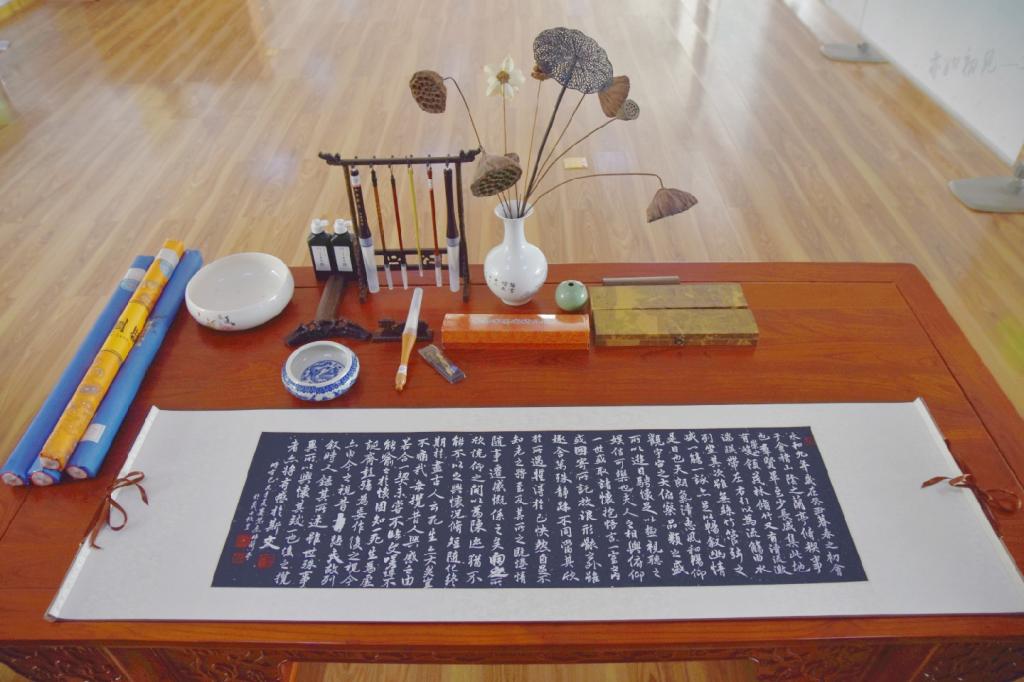 永和九年歲在癸丑暮春之初會
于會稽山陰之蘭亭脩稧事
也羣賢畢至少長咸集此地
有崇山峻領茂林脩竹又有清流激
湍映帶左右引以為流觴曲水
列坐其次雖無絲竹管絃之
盛一觴一詠亦足以暢敘幽情
是日也天朗氣清惠風和暢仰
觀宇宙之大俯察品類之盛
所以遊目騁懷足以極視聽之
娛信可樂也夫人之相與俯仰
一世或取諸懷抱悟言一室之內
或因寄所託放浪形骸之外雖
趣舍萬殊靜躁不同當其欣
於所遇暫得於己快然自足不
知老之將至及其所之既惓情
隨事遷感慨係之矣向之所
欣俛仰之間以為陳迹猶不
能不以之興懷況脩短隨化終
期於盡古人云死生亦大矣豈
不痛哉每攬昔人興感之由
若合一契未嘗不臨文嗟悼不
能喻之於懷固知一死生為虛
誕齊彭殤為妄作後之視今
亦由今之視昔悲夫故列
敘時人錄其所述雖世殊事
異所以興懷其致一也後之攬
者亦將有感於斯文